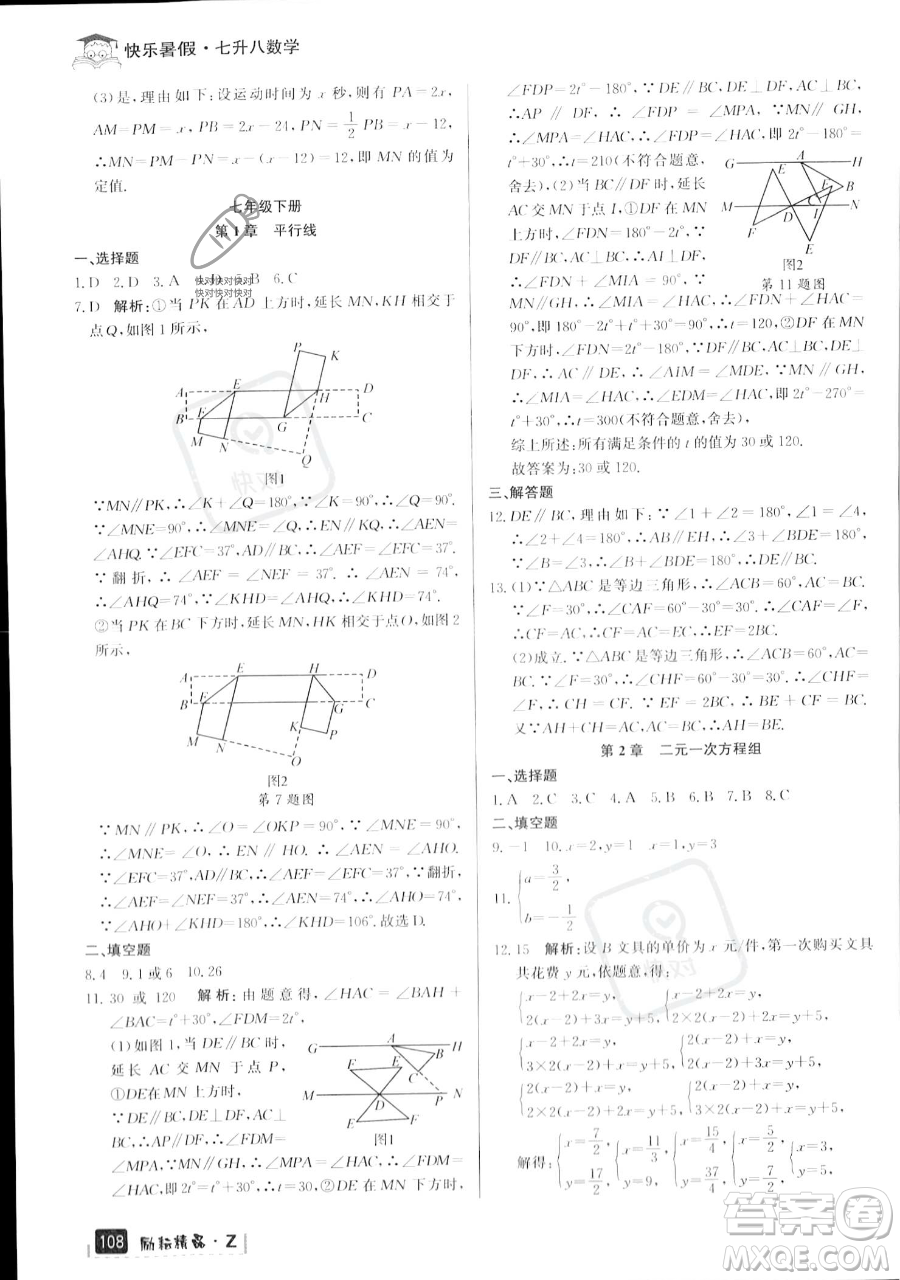 快乐暑假·七升八数学
(3)是,理由如下:设运动时间为 x 秒,则有 PA=2x,
AM=PM=x,PB=2x-24,PN=1/2 PB=x-12,
∴MN=PM-PN=x-(x-12)=12,即 MN 的值为
定值.
七年级下册
第 1 章 平行线
一、选择题
1.D 2.D 3.A 5.B 6.C
快对快对快对
快对快对快对
7.D 解析:①当 PK 在 AD 上方时,延长 MN,KH 相交于
点Q,如图 1 所示,
P
K
A E H D
B F G C
M N
Q
图1
∵MN∥PK,∴∠K+∠Q=180°,∴∠Q=90°,
∵∠MNE=90°,∴∠MNE=∠Q,∴∠AEN=
∠AHQ.∵∠EFC=37°,AD∥BC,∴∠AEF=37°.
∵翻折,∴∠AEF=∠NEF=37°.∴∠AEN=
74°,∴∠AHQ=74°,∵∠KHD=∠AHQ=74°;
②当 PK 在BC 下方时,延长 MN,HK 相交于点O,如图 2
所示,
A E H D
B G C
M N K P
O
图2
第 7 题图
∵MN∥PK,∴∠O=∠OKP=90°,∵∠MNE=
90°,∴∠MNE=∠O,∴EN∥HO.∴∠AEN=
∠AHO.∵∠EFC=37°,AD∥BC,∴∠AEF=
∠EFC=37°.∴∠AEF=∠NEF=37°.∵翻折,
∴∠AEF=∠NEF=37°,∴∠AEN=74°,∴∠AHO=
74°,∵∠AHO+∠KHD=180°,∴∠KHD=106°.故选D.
二、填空题
8.4 9.1 或 6 10.26
11.30 或 120 解析:由题意得,∠HAC=∠BAH+
∠BAC=t°+30°,∠FDM=2t°,
(1)如图 1,当 DE∥BC 时,
延长 AC 交 MN 于点 P,
①DE在MN 上方时,
∵DE∥BC,DE⊥DF,
AC⊥BC,∴AP∥DF,∴∠FDM=
∠MPA,∵MN∥GH,∴∠MPA=∠HAC,∴∠FDM=
∠HAC,即 2t°=t°+30°,∴t=30,②DE在MN 下方时,
G A H
E E B
C
M D P N
F F
图1
∠FDP=2t°-180°,∵DE∥BC,DE⊥DF,AC⊥BC,
∴AP∥DF,∴∠FDP=∠MPA,∵MN∥GH,
∴∠MPA=∠HAC,∴∠FDP=∠HAC,即 2t°-180°=
t°+30°,∴t=210(不符合题意,
舍去);(2)当 DF∥BC 时,延长
AC 交 MN 于点 I,①DF在MN
上方时,∠FDN=180°-2t°,
∵DF∥BC,AC⊥BC,∴AI⊥
DF,∴∠FDN+∠MIA=90°.
∵MN∥GH,∴∠MIA=∠HAC,∴∠FDN+∠HAC=
90°,即 180°-2t°+t°+30°=90°,∴t=120,②DF在MN
下方时,∠FDN=2t°-180°,∵DF∥BC,AC⊥BC,DE⊥
DF,∴AC∥DE,∴∠AIM=∠MDE,∵MN∥GH,
∴∠MIA=∠HAC,∴∠EDM=∠HAC,即 2t°-270°=
t°+30°,∴t=300(不符合题意,舍去).
综上所述:所有满足条件的 t 的值为 30 或 120.
故答案为:30 或 120.
G A H
F E B
M D I N
F E
图2
第 11 题图
三、解答题
12.DE∥BC,理由如下:∵∠1+∠2=180°,∠1=∠4,
∴∠2+∠4=180°.∴EH∥AB.∴∠B=∠EHC.
∵∠3=∠B,∴∠3=∠EHC.∴DE∥BC.
13.(1)∵△ABC 是等边三角形,∴∠CAB=∠ACB=60°.
∵∠F=30°,∴∠CAF=60°-30°=30°.∴∠CAF=
∠F,∴CF=AC.∵CF=AC,∴EF=2BC.
(2)成立.∵△ABC 是等边三角形,∴∠CAB=60°,
∵∠F=30°,∴∠CHF=60°-30°=30°.∴∠CHF=
∠F,∴CH=CF.∵EF=2BC,∴BE+CF=BC.
又∵AH+CH=AC,AC=BC,∴AH=BE.
第 2 章 二元一次方程组
一、选择题
1.A 2.C 3.C 4.A 5.B 6.B 7.B 8.C
二、填空题
9.-1 10.x=2,y=1 x=1,y=3
11.{a=3/2,
b=-1/2
12.15 解析:设 B 文具的单价为 x 元/件,第一次购买文具
共花费 y 元,依题意,得:
{x-2+2x=y, {x-2+2x=y,
2(x-2)+x=y+5, 2×2(x-2)+x=y+5,
{x-2+2x=y, {2(x-2)+x=y,
3×2(x-2)+x=y+5, 2×2(x-2)+x=y+5,
{2(x-2)+x=y,
3×2(x-2)+x=y+5,
解得:{x=7/2, y=17/2 {x=11/3, y=9 {x=15/4, y= {x=5/2, y= {x=3, y=5.
108 励耘精品·Z
快对
快对
答案圈
MXQE.COM